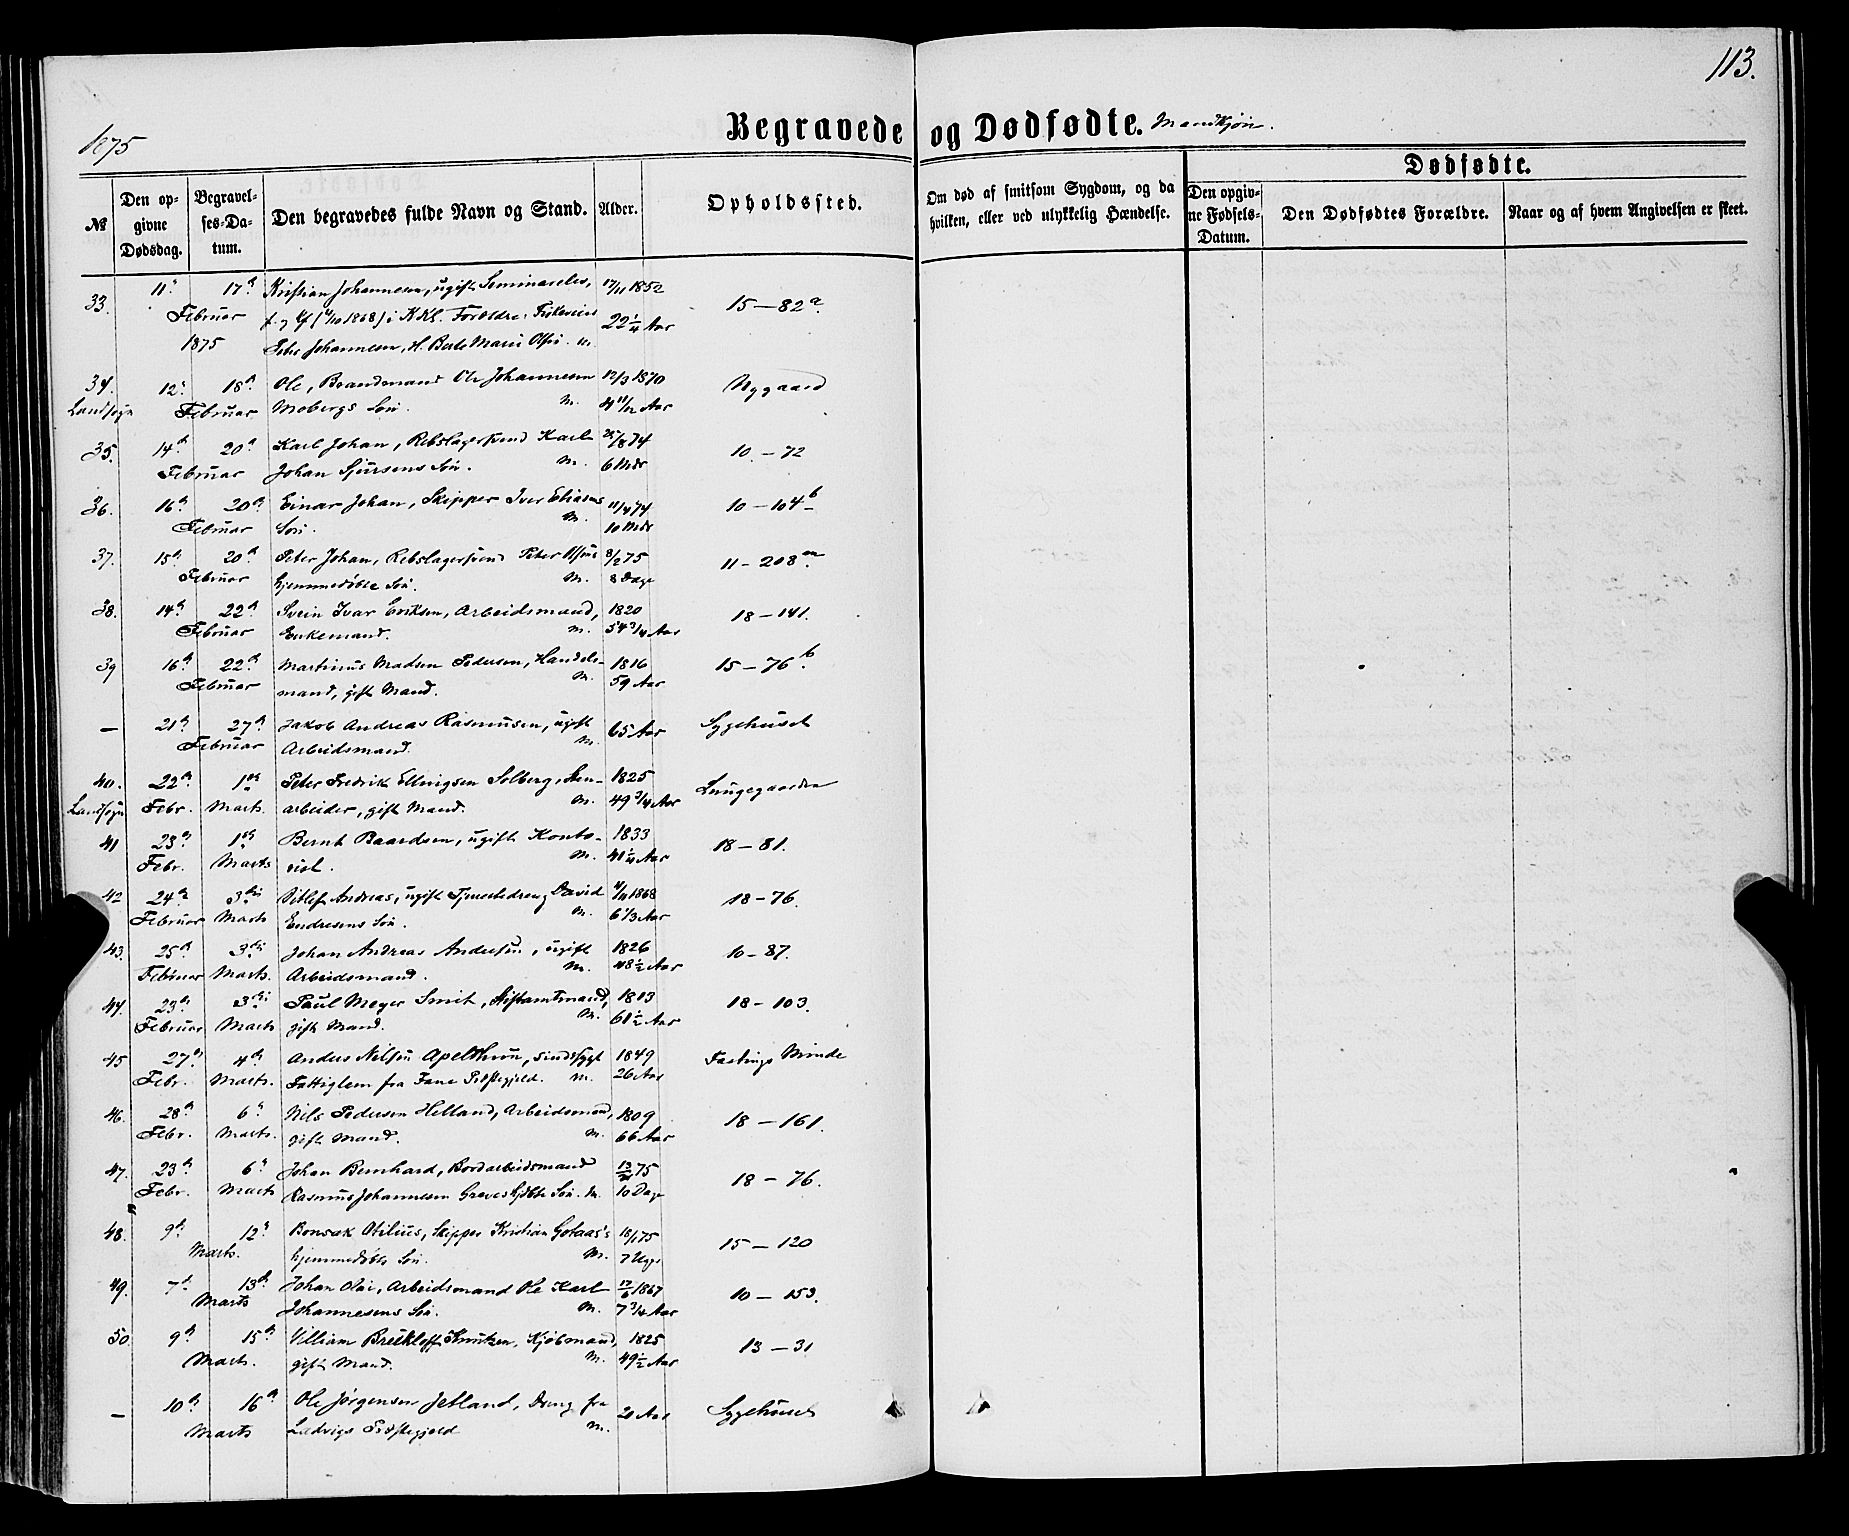 113.
1875
Begravede og Dødfødte. Mandkjøn.
Dødfødte.
№
Den opgivne Dødsdag.
Begravelses-Datum.
Den begravedes fulde Navn og Stand.
Alder.
Opholdssted.
Om død af smitsom Sygdom, og da hvilken, eller ved ulykkelig Hændelse.
Den opgivne Fødsels-Datum.
Den Dødfødtes Forældre.
Naar og af hvem Angivelsen er skeet.
33. 11' 17de Kristian Johannesen, ugift Seminarelev, 17/11 1852 15–82a
Februar i KKl. Forældre: 22 1/4 Aar
1875 Peder Johannesen, H. Berte Marie Olsen. m
34. 12' 18de Ole, Brandmand Ole Johannesen 12/3 1870 Nygaard
Landsogn Februar Mobergs Søn. M. 4 11/12 Aar
35. 14de 20de Karl Johan, Rebslagersvend Karl 25/8 74 10–72
Februar Johan Sjursens Søn. M. 6 Mdr
36. 16de 20de Einar Johan, Skipper Iver Eliasens 11/4 74 10–104b
Februar Søn. M. 10 Mdr
37. 15de 20de Peter Johan, Rebslagersvend Peter Olsens 8/2 75 11–208
Februar hjemmedøbte Søn. M. 8 Dage
38. 14de 22de Svein Ivar Eriksen, Arbeidsmand, 1820 18–141.
Februar Enkemand. M. 54 3/4 Aar
39 16de 22de Martinus Madsen Pedersen, Handels- 1816 15–76b
Februar mand, gift Mand. M. 59 Aar
– 21de 27de Jakob Andreas Rasmussen, ugift 65 Aar Sygehuset
Februar Arbeidsmand. M.
40. 22de 1ste Peter Fredrik Ellingsen Solberg, Sten- 1825 Lungegaarden
Landsogn Febr. Marts. arbeider, gift Mand. M. 49 3/4 Aar
41 23de 1ste Bernt Baardsen, ugift Konto- 1833 18–81.
Febr. Marts rist. M. 41 1/4 Aar
42 24de 3die Andreas, ugift Tjenestedreng David 1868 18–76.
Februar Marts Endresens Søn. M. 6 1/3 Aar
43. 25de 3die Johan Andreas Andersen, ugift 1826 10–87.
Februar Marts. Arbeidsmand. M. 48 1/2 Aar
44. 23de 3die Paul Meyer Smit, Stiftamtmand, 1813 18–103.
Februar Marts gift Mand. M. 61 1/2 Aar
45 27de 4de Anders Nilsen Apelthun, sindssygt 1849 Fastings Minde
Febr. Marts. Fattiglem fra Fane Præstegjeld. M. 26 Aar
46. 28de 6te Nils Pedersen Helland, Arbeidsmand, 1809 18–161.
Febr. Marts. gift Mand. M. 66 Aar
47. 23de 6te Johan Bernhard, Bordarbeidsmand 13/2 75 18–76.
Febr. Marts Rasmus Johannesen Greves hjdbte Søn. M. 10 Dage
48. 9de 12te Bonsak Otilius, Skipper Kristian Gotaas's 18/1 75 15–120
Marts. hjemmedøbte Søn. M. 7 Uger
49. 7de 13de Johan Olai, Arbeidsmand Ole Karl 17/6 1867 10–153.
Marts Johannesens Søn. M. 7 3/4 Aar
50. 9de 15de Villiam Knutzen, Kjøbmand, 1825 13–31
Marts. gift Mand. M. 49 1/2 Aar
– 10de 16de Ole Jørgensen Jetland, Dreng fra Aar Sygehuset
Marts Ladvigs Præstegjeld M.